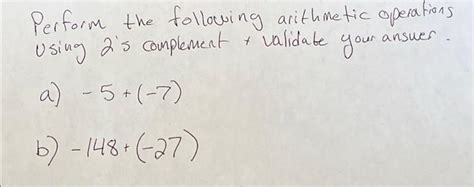 Perform the following arithmetic operations
Using 2's complement + validate your answer.
a) -5+(-7)
b) -148+(-27)